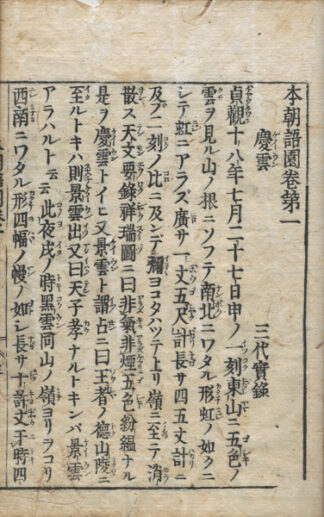 本朝語園卷第一
慶雲　三代實錄
貞觀十八年七月二十七日申ノ一刻東山ニ五色ノ
雲ヲ見ル山ノ根ニソフテ南北ニワタル形虹ノ如クニ
シテ虹ニアラズ廣サ一丈五尺計長サ四五丈計ニ
及フ二刻ノ比ニ及ンデ彌ヨコタハツテ上リ嶺ニ至テ消
散ス天文要錄祥瑞圖ニ曰非氣非煙五色紛縕ナル
是ヲ慶雲トイヒ又景雲ト謂占ニ曰王者ノ德山陵ニ
至ルトキハ則景雲出又曰天子孝ナルトキンバ景雲
アラハルト云云此夜戌ノ時黑雲阿山ノ嶺ヨリヲコリ
西南ニワタル形四幅ノ幔ノ如シ長サ十許丈子時四